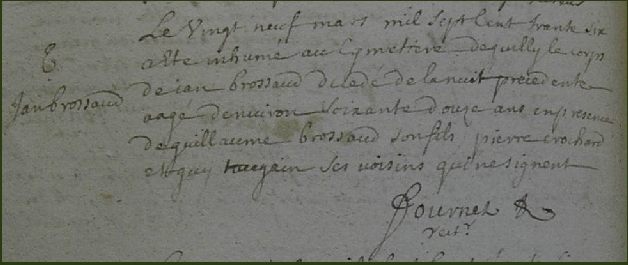 Le vingt neuf mars mil sept cent trante six
a été inhumé au Cymetiere de quilly le corps
E
de jan brossaud decedé de la nuit precedente
Jan brossaud
aagé denviron soixante douze ans en presence
de guillaume brossaud son fils pierre crochard
et guy ses voisins qui ne signent
Journet
rect.r